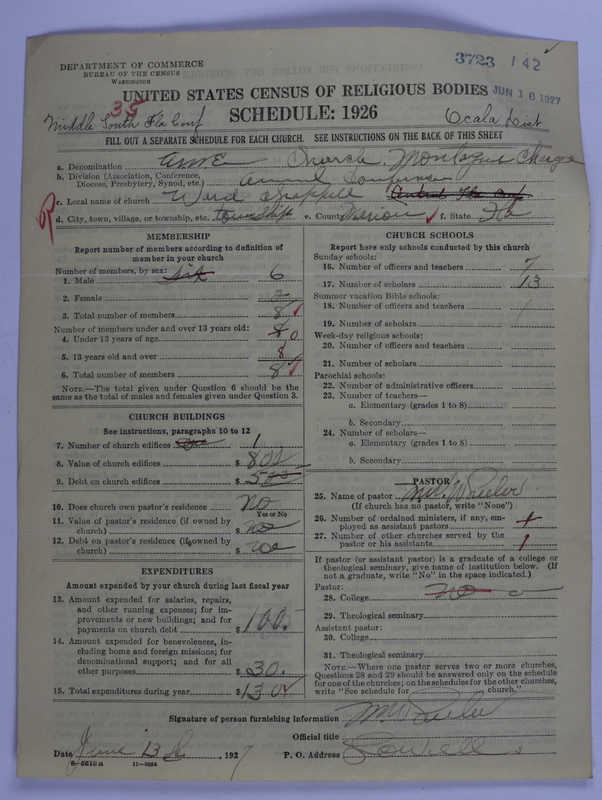 3723 142
DEPARTMENT OF COMMERCE
BUREAU OF THE CENSUS
WASHINGTON
JUN 16 1927
UNITED STATES CENSUS OF RELIGIOUS BODIES
35
Middle South Fla Conf
SCHEDULE: 1926
Ocala Dist
FILL OUT A SEPARATE SCHEDULE FOR EACH CHURCH. SEE INSTRUCTIONS ON THE BACK OF THIS SHEET
a. Denomination AME Church. Montague Charge
b. Division (Association, Conference, Diocese, Presbytery, Synod, etc.) Annual Conference
c. Local name of church Ward Chappell Central Fla Conf
d. City, town, village, or township, etc. township e. County Marion f. State Fla
MEMBERSHIP
Report number of members according to definition of
member in your church
Number of members, by sex:
1. Male six 6
2. Female 2
3. Total number of members 8
Number of members under and over 13 years old:
4. Under 13 years of age 8 0
5. 13 years old and over 8
6. Total number of members 8
NOTE.—The total given under Question 6 should be
the same as the total of males and females given under Question 3.
CHURCH BUILDINGS
See instructions, paragraphs 10 to 12
7. Number of church edifices 1
8. Value of church edifices $ 800
9. Debt on church edifices $
10. Does church own pastor's residence No
Yes or No
11. Value of pastor's residence (if owned by
church) $ no
12. Debt on pastor's residence (if owned by
church) $
EXPENDITURES
Amount expended by your church during last fiscal year
13. Amount expended for salaries, repairs,
and other running expenses; for im-
provements or new buildings; and for
payments on church debt $ 100.
14. Amount expended for benevolences, in-
cluding home and foreign missions; for
denominational support; and for all
other purposes $ 30.
15. Total expenditures during year $ 130
CHURCH SCHOOLS
Report here only schools conducted by this church
Sunday schools:
16. Number of officers and teachers 7
17. Number of scholars 13
Summer vacation Bible schools:
18. Number of officers and teachers
19. Number of scholars
Week-day religious schools:
20. Number of officers and teachers
21. Number of scholars
Parochial schools:
22. Number of administrative officers
23. Number of teachers—
a. Elementary (grades 1 to 8)
b. Secondary
24. Number of scholars—
a. Elementary (grades 1 to 8)
b. Secondary
PASTOR
25. Name of pastor
(If church has no pastor, write "None")
26. Number of ordained ministers, if any, em-
ployed as assistant pastors
27. Number of other churches served by the
pastor or his assistants 1
If pastor (or assistant pastor) is a graduate of a college or
theological seminary, give name of institution below. (If
not a graduate, write "No" in the space indicated.)
Pastor:
28. College No
29. Theological seminary
Assistant pastor:
30. College
31. Theological seminary
NOTE.—Where one pastor serves two or more churches,
Questions 28 and 29 should be answered only on the schedule
for one of the churches; on the schedules for the other churches,
write "See schedule for church."
Signature of person furnishing information
Official title
Date June 13, 1927 P. O. Address Lowell
8—5515 a 11—9024